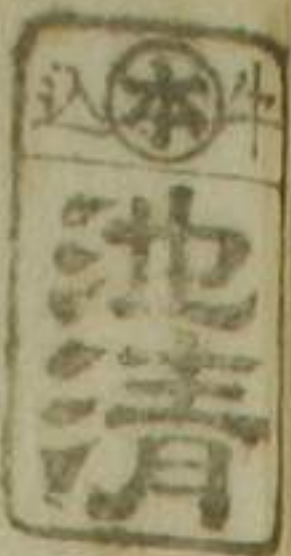 牛本込
池清